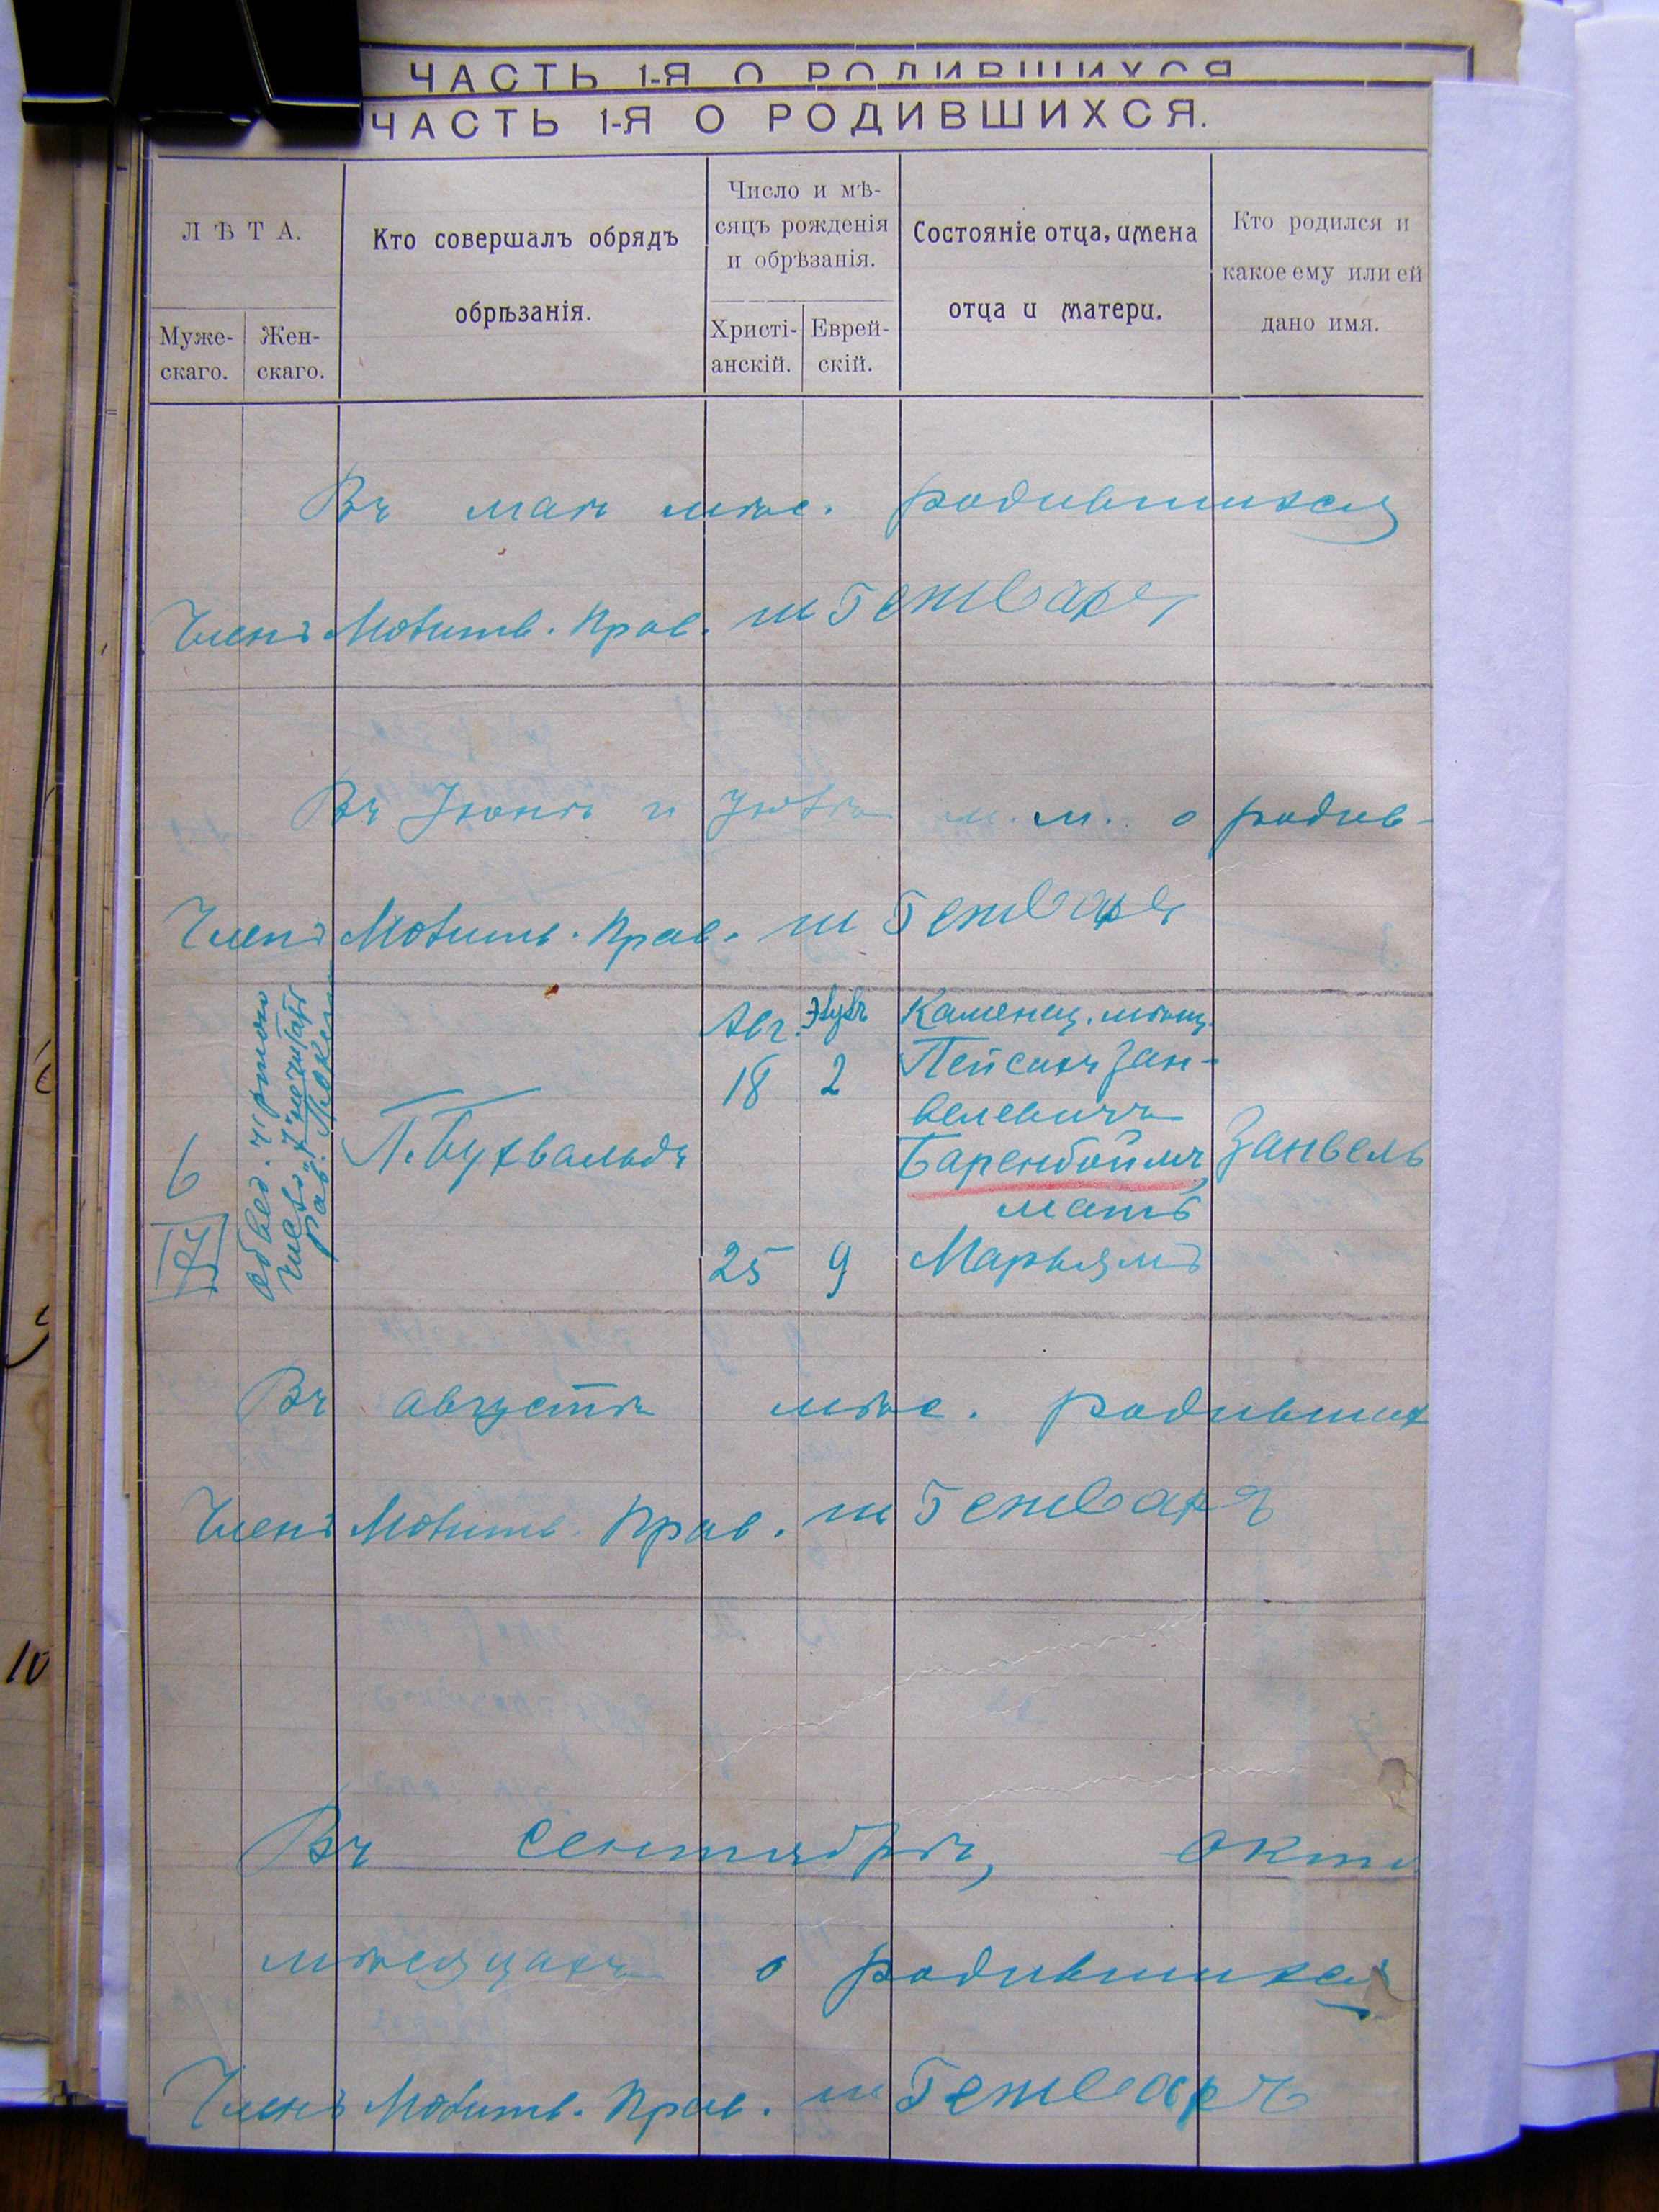 ЧАСТЬ 1-Я О РОДИВШИХСЯ
ЧАСТЬ 1-Я О РОДИВШИХСЯ.
ЛѢТА.
Муже-
скаго.
Жен-
скаго.
Кто совершалъ обрядъ
обрѣзанія.
Число и мѣ-
сяцъ рожденія
и обрѣзанія.
Христі-
анскій.
Еврей-
скій.
Состояніе отца, имена
отца и матери.
Кто родился и
какое ему или ей
дано имя.
Въ маѣ мѣс. родившихся
Членъ Молитв. Прав.
Въ Іюнѣ и Іюлѣ м.м. о родив-
Членъ Молитв. Прав.
6
П. Бухвальдъ
Авг.
18
25
Элулъ
2
9
Каменец. мѣщ.
Пейсахъ Зан-
велевичъ
Баренбоймъ
мать
Марьямъ
Занвель
Въ августѣ мѣс. родивших
Членъ Молитв. Прав.
Въ сентябрѣ, октя
мѣсяцахъ о родившихся
Членъ Молитв. Прав.
10